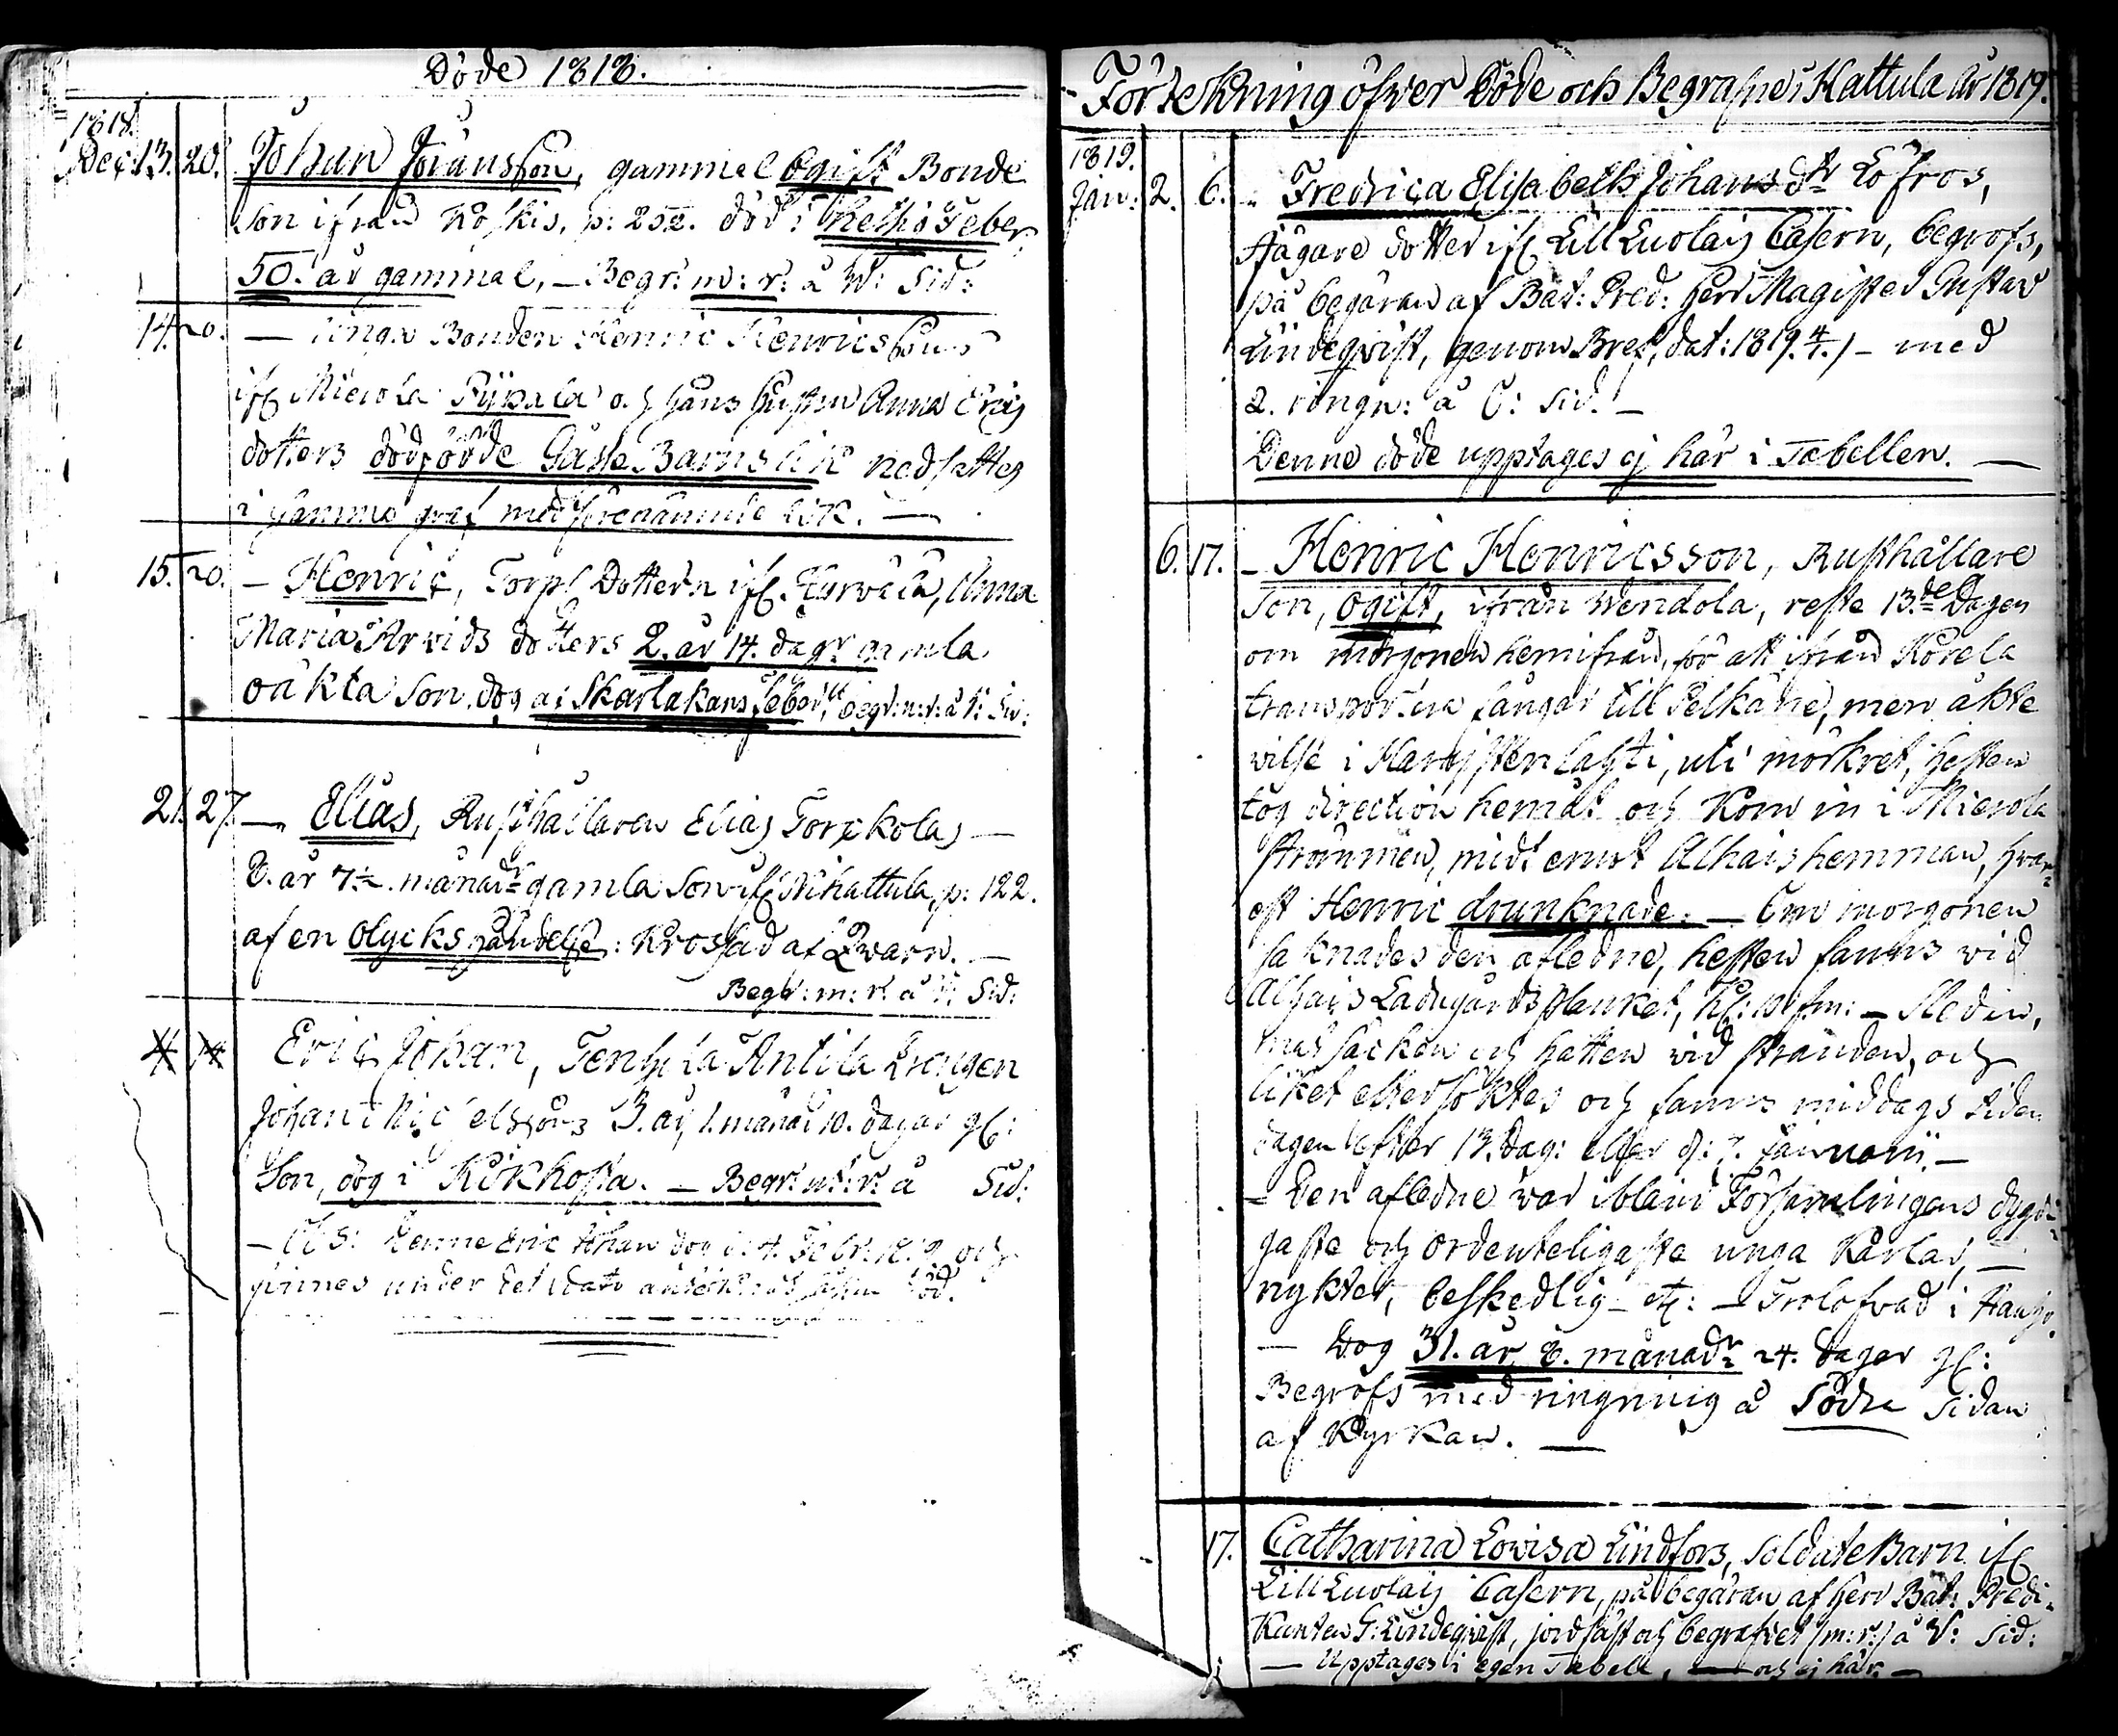 Döde 1818.
1818.
Dec: 13. 20. Johan Joransson, gammal ogift Bonde
son ifrån Koskis, p: 252. död i hethig Feber
50. år gammal, – Begr: m: r: å N: Sid:
14. 20. — unga Bonden Henric Henricssons
ifr Mierola Pijpala och hans hustru Anna Erics
dotters dödfödde Gåsse Barns lik nedsattes
i samma graf med förenämnde lik. —
15. 20. – Henric, Torp Dottern ifr. Hurwala, Anna
Maria Arvids dotters 2. år 14. dagr gamla
oäkta Son, dog af Skarlakans feber, begr: m: r: å N: Sid:
21. 27. — Elias, Rusthållaren Elias Torckolas —
8. år 7½ månadr gamla Son ifr Nihattula, p: 122.
af en olyckshändelse: krossad af Qvarn. —
Begr: m: r: å N: Sid:
4 14 Eric Johan, Tenhiala Antila Drengen
Johan Michelssons 3. år, 1. månad 10. dagar gl:
Son, dog i Kikhosta. – Begr: m: r: å Sid:
– Obs: Denne Eric Johan dog d: 4. Febr. 1819 och
finnes under det dato antecknad såsom död.
Förtekning öfver Döde och Begrafne i Hattula år 1819.
1819.
Jan: 2. 6. – Fredrica Elisabeth Johans dtr Löfros,
Jägare dotter ifr Lill Luolais Casern, begrofs,
på begäran af Bat: Pred: Herr Magister Gustav
Lindeqvist, genom Bref, dat: 1819. 4/1. – med
2. ringn: å N: Sid. –
Denne döde upptages ej här i Tabellen. —
6. 17. – Henric Henricsson, Rusthållare
Son, ogift, ifrån Wendola, reste 13.de Dagen
om morgonen hemifrån, för att ifrån Körela
transportera fångar till Pelkäne, men åkte
vilse i Harvistenlahti, uti mörkret, hesten
tog direction hemåt och kom in i Mierola
strömmen, midt emot Alhais hemman, hvar=
est Henric drunknade. – Om morgonen
saknades den afledne, hesten fanns vid
Alhais Ladugårds planket, Kl: 10 fm: – Släden,
matsäcken och hatten vid stranden, och
liket eftersöktes och fanns middags tiden
dagen efter 13. Dag: eller d: 7. Januarii. –
– Den afledne var ibland Församlingens dygdi=
gaste och ordenteligaste unga karlar, —
nykter, beskedlig – etc: – Trolofvad i Hauho.
— Dog 31. år, 8. månadr 24. dagar gl:
Begrofs med ringning å Södra sidan
af Kyrkan. —
17. Catharina Lovisa Lindfors, Soldate Barn ifr
Lill Luolais Casern, på begäran af Herr Bat: Predi=
kanten G: Lindeqvist, jordfäst och begrafvet /m: r:/ å N: Sid:
— Upptages i egen Tabell, — och ej här. —